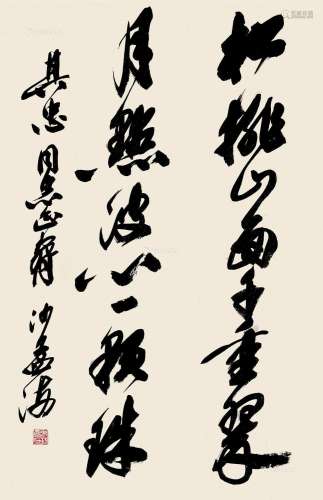 松排山面千重翠
月點波心一顆珠
其忠同志正腕
沙孟海